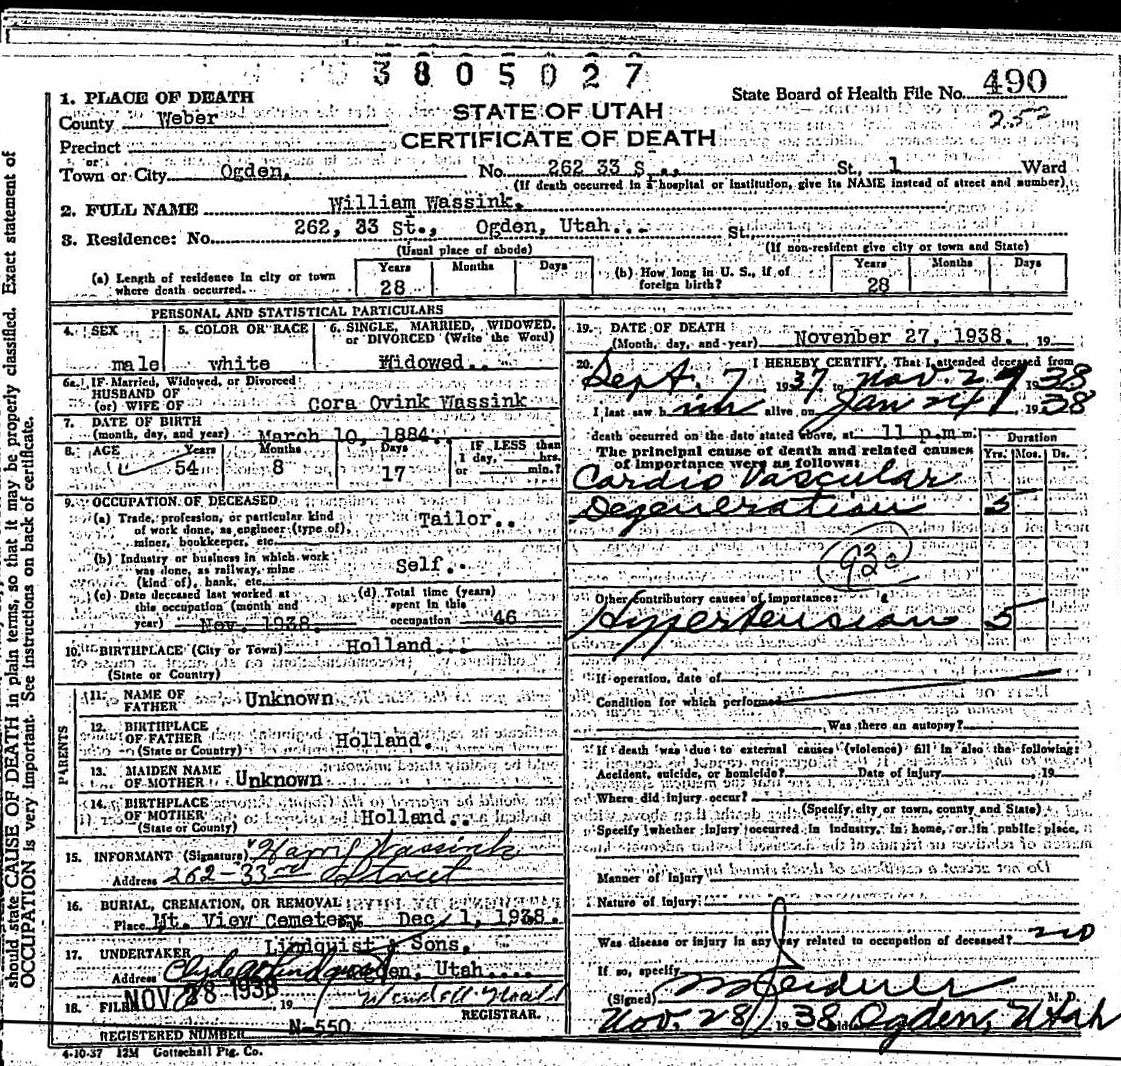 3805027
State Board of Health File No. 490
252
STATE OF UTAH
CERTIFICATE OF DEATH
1. PLACE OF DEATH
County Weber
Precinct
or
Town or City Ogden, No. 262 33 S., St., 1 Ward
(If death occurred in a hospital or institution, give its NAME instead of street and number)
2. FULL NAME William Wassink.
3. Residence: No. 262, 33 St., Ogden, Utah... St.
(Usual place of abode) (If non-resident give city or town and State)
(a) Length of residence in city or town where death occurred. Years 28 Months Days
(b) How long in U. S., if of foreign birth? Years 28 Months Days
PERSONAL AND STATISTICAL PARTICULARS
4. SEX male
5. COLOR OR RACE white
6. SINGLE, MARRIED, WIDOWED, or DIVORCED (Write the Word) Widowed..
6a. If Married, Widowed, or Divorced
HUSBAND OF
(or) WIFE OF Cora Ovink Wassink
7. DATE OF BIRTH
(month, day, and year) March 10, 1884.
8. AGE Years 54 Months 8 Days 17 IF LESS than 1 day, hrs. or min.?
9. OCCUPATION OF DECEASED
(a) Trade, profession, or particular kind of work done, as engineer (type of), miner, bookkeeper, etc. Tailor..
(b) Industry or business in which work was done, as railway, mine (kind of), bank, etc. Self..
(c) Date deceased last worked at this occupation (month and year) Nov. 1938.
(d) Total time (years) spent in this occupation 46
10. BIRTHPLACE (City or Town) Holland...
(State or Country)
PARENTS
11. NAME OF FATHER Unknown
12. BIRTHPLACE OF FATHER Holland.
(State or Country)
13. MAIDEN NAME OF MOTHER Unknown
14. BIRTHPLACE OF MOTHER Holland...
(State or Country)
15. INFORMANT (Signature) Harry Wassink
Address 262-33rd Street
16. BURIAL, CREMATION, OR REMOVAL
Place Mt. View Cemetery Dec. 1, 1938.
17. UNDERTAKER Lindquist & Sons,
Address Ogden, Utah....
18. FILED NOV 28 1938 19
REGISTRAR.
REGISTERED NUMBER N-550
4-10-37 12M Gottschall Ptg. Co.
19. DATE OF DEATH
(Month, day, and year) November 27, 1938. 19
20. I HEREBY CERTIFY, That I attended deceased from
Sept. 7 1937 to Nov. 27 1938
I last saw him alive on Jan 24 1938
death occurred on the date stated above, at 11 p.m m.
The principal cause of death and related causes of importance were as follows:
Duration
Yrs. Mos. Ds.
Cardio Vascular
Degeneration 5
Other contributory causes of importance:
Hypertension 5
If operation, date of
Condition for which performed
Was there an autopsy?
If death was due to external causes (violence) fill in also the following:
Accident, suicide, or homicide? Date of injury 19
Where did injury occur?
(Specify city or town, county and State)
Specify whether injury occurred in industry, in home, or in public place,
Manner of injury
Nature of injury
Was disease or injury in any way related to occupation of deceased? no
If so, specify
(Signed) M. D.
Nov. 28 1938 Ogden, Utah
should state CAUSE OF DEATH in plain terms, so that it may be properly classified. Exact statement of
OCCUPATION is very important. See instructions on back of certificate.